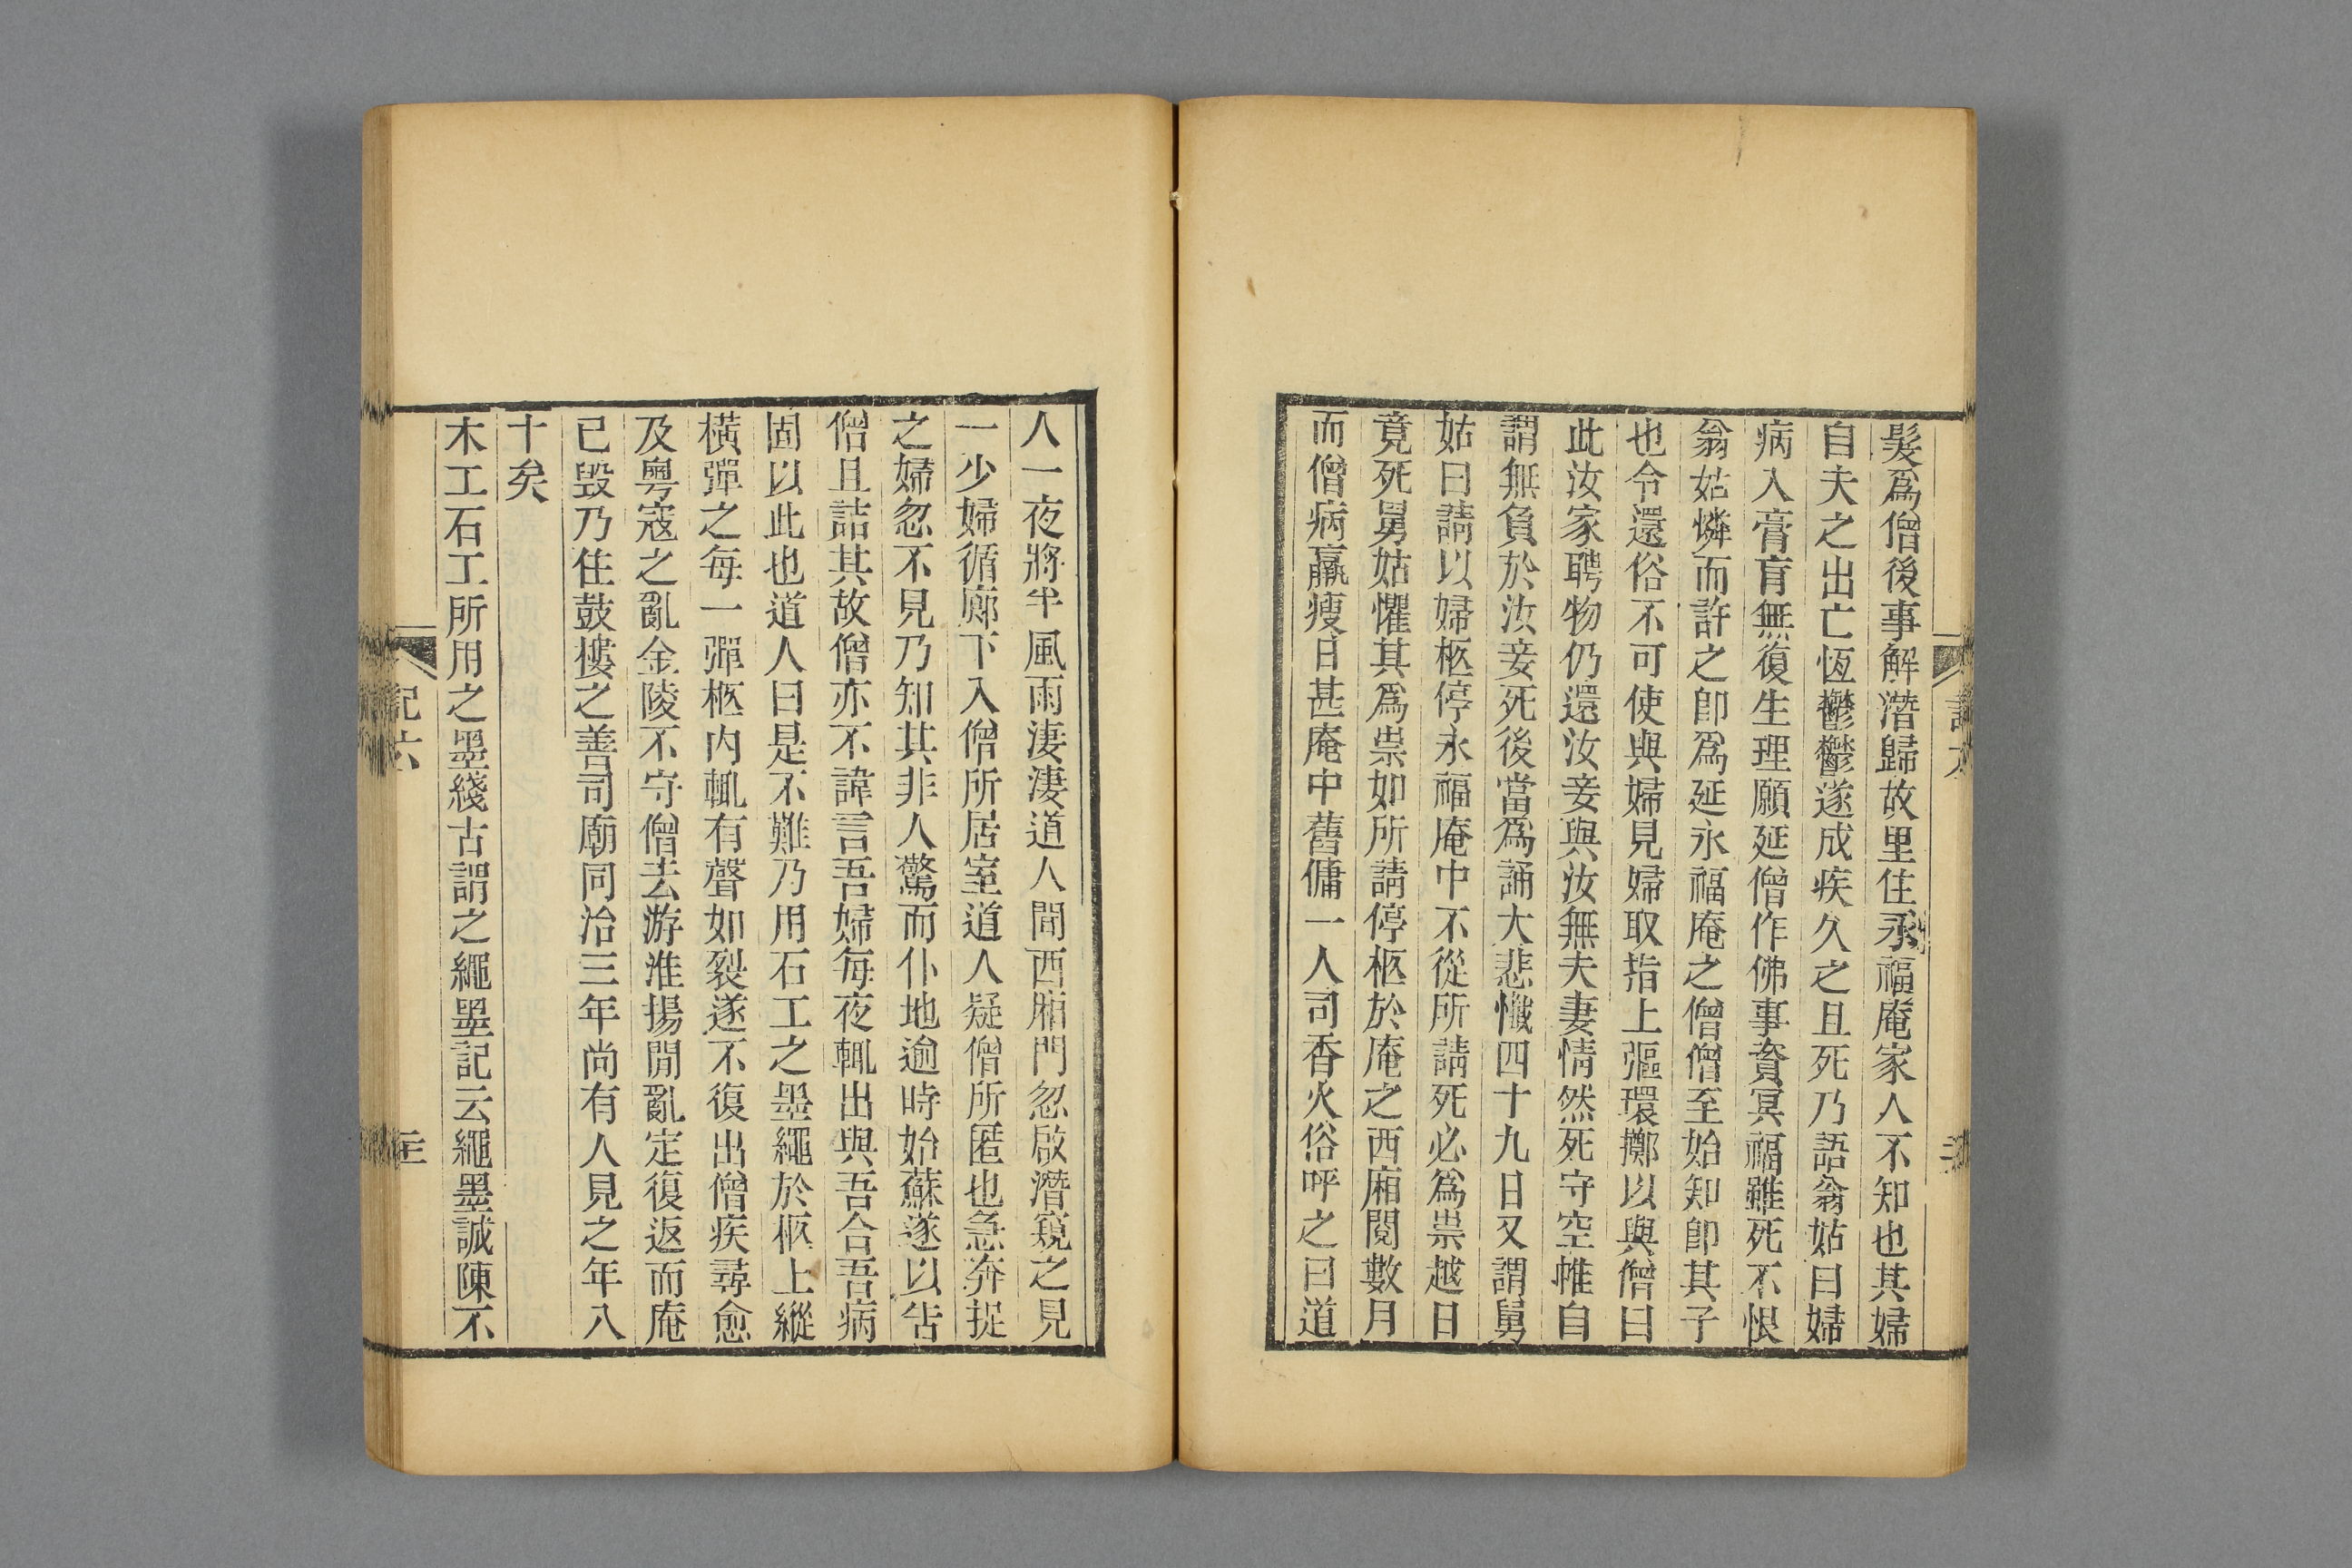 髮爲僧後事解潛歸故里住永福庵家人不知也其婦
自夫之出亡恆鬱鬱遂成疾久之且死乃語翁姑曰婦
病入膏肓無復生理願延僧作佛事資冥福雖死不恨
翁姑憐而許之卽爲延永福庵之僧僧至始知卽其子
也令還俗不可使與婦見婦取指上彄環擲以與僧曰
此汝家聘物仍還汝妾與汝無夫妻情然死守空帷自
謂無負於汝妾死後當爲誦大悲懺四十九日又謂舅
姑曰請以婦柩停永福庵中不從所請死必爲祟越日
竟死舅姑懼其爲祟如所請停柩於庵之西廂閱數月
而僧病羸瘦日甚庵中舊傭一人司香火俗呼之曰道
人一夜將半風雨淒淒道人聞西廂門忽啟潛窺之見
一少婦循廊下入僧所居室道人疑僧所匿也急奔捉
之婦忽不見乃知其非人驚而仆地逾時始蘇遂以告
僧且詰其故僧亦不諱言吾婦每夜輒出與吾合吾病
固以此也道人曰是不難乃用石工之墨繩於柩上縱
橫彈之每一彈柩內輒有聲如裂遂不復出僧疾尋愈
及粵寇之亂金陵不守僧去游淮揚閒亂定復返而庵
已毀乃住鼓摟之善司廟同治三年尚有人見之年八
十矣
木工石工所用之墨綫古謂之繩墨記云繩墨誠陳不
記六